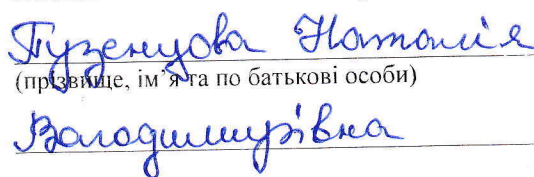 Пузенцова Наталія
(прізвище, ім’я та по батькові особи)
Володимирівна